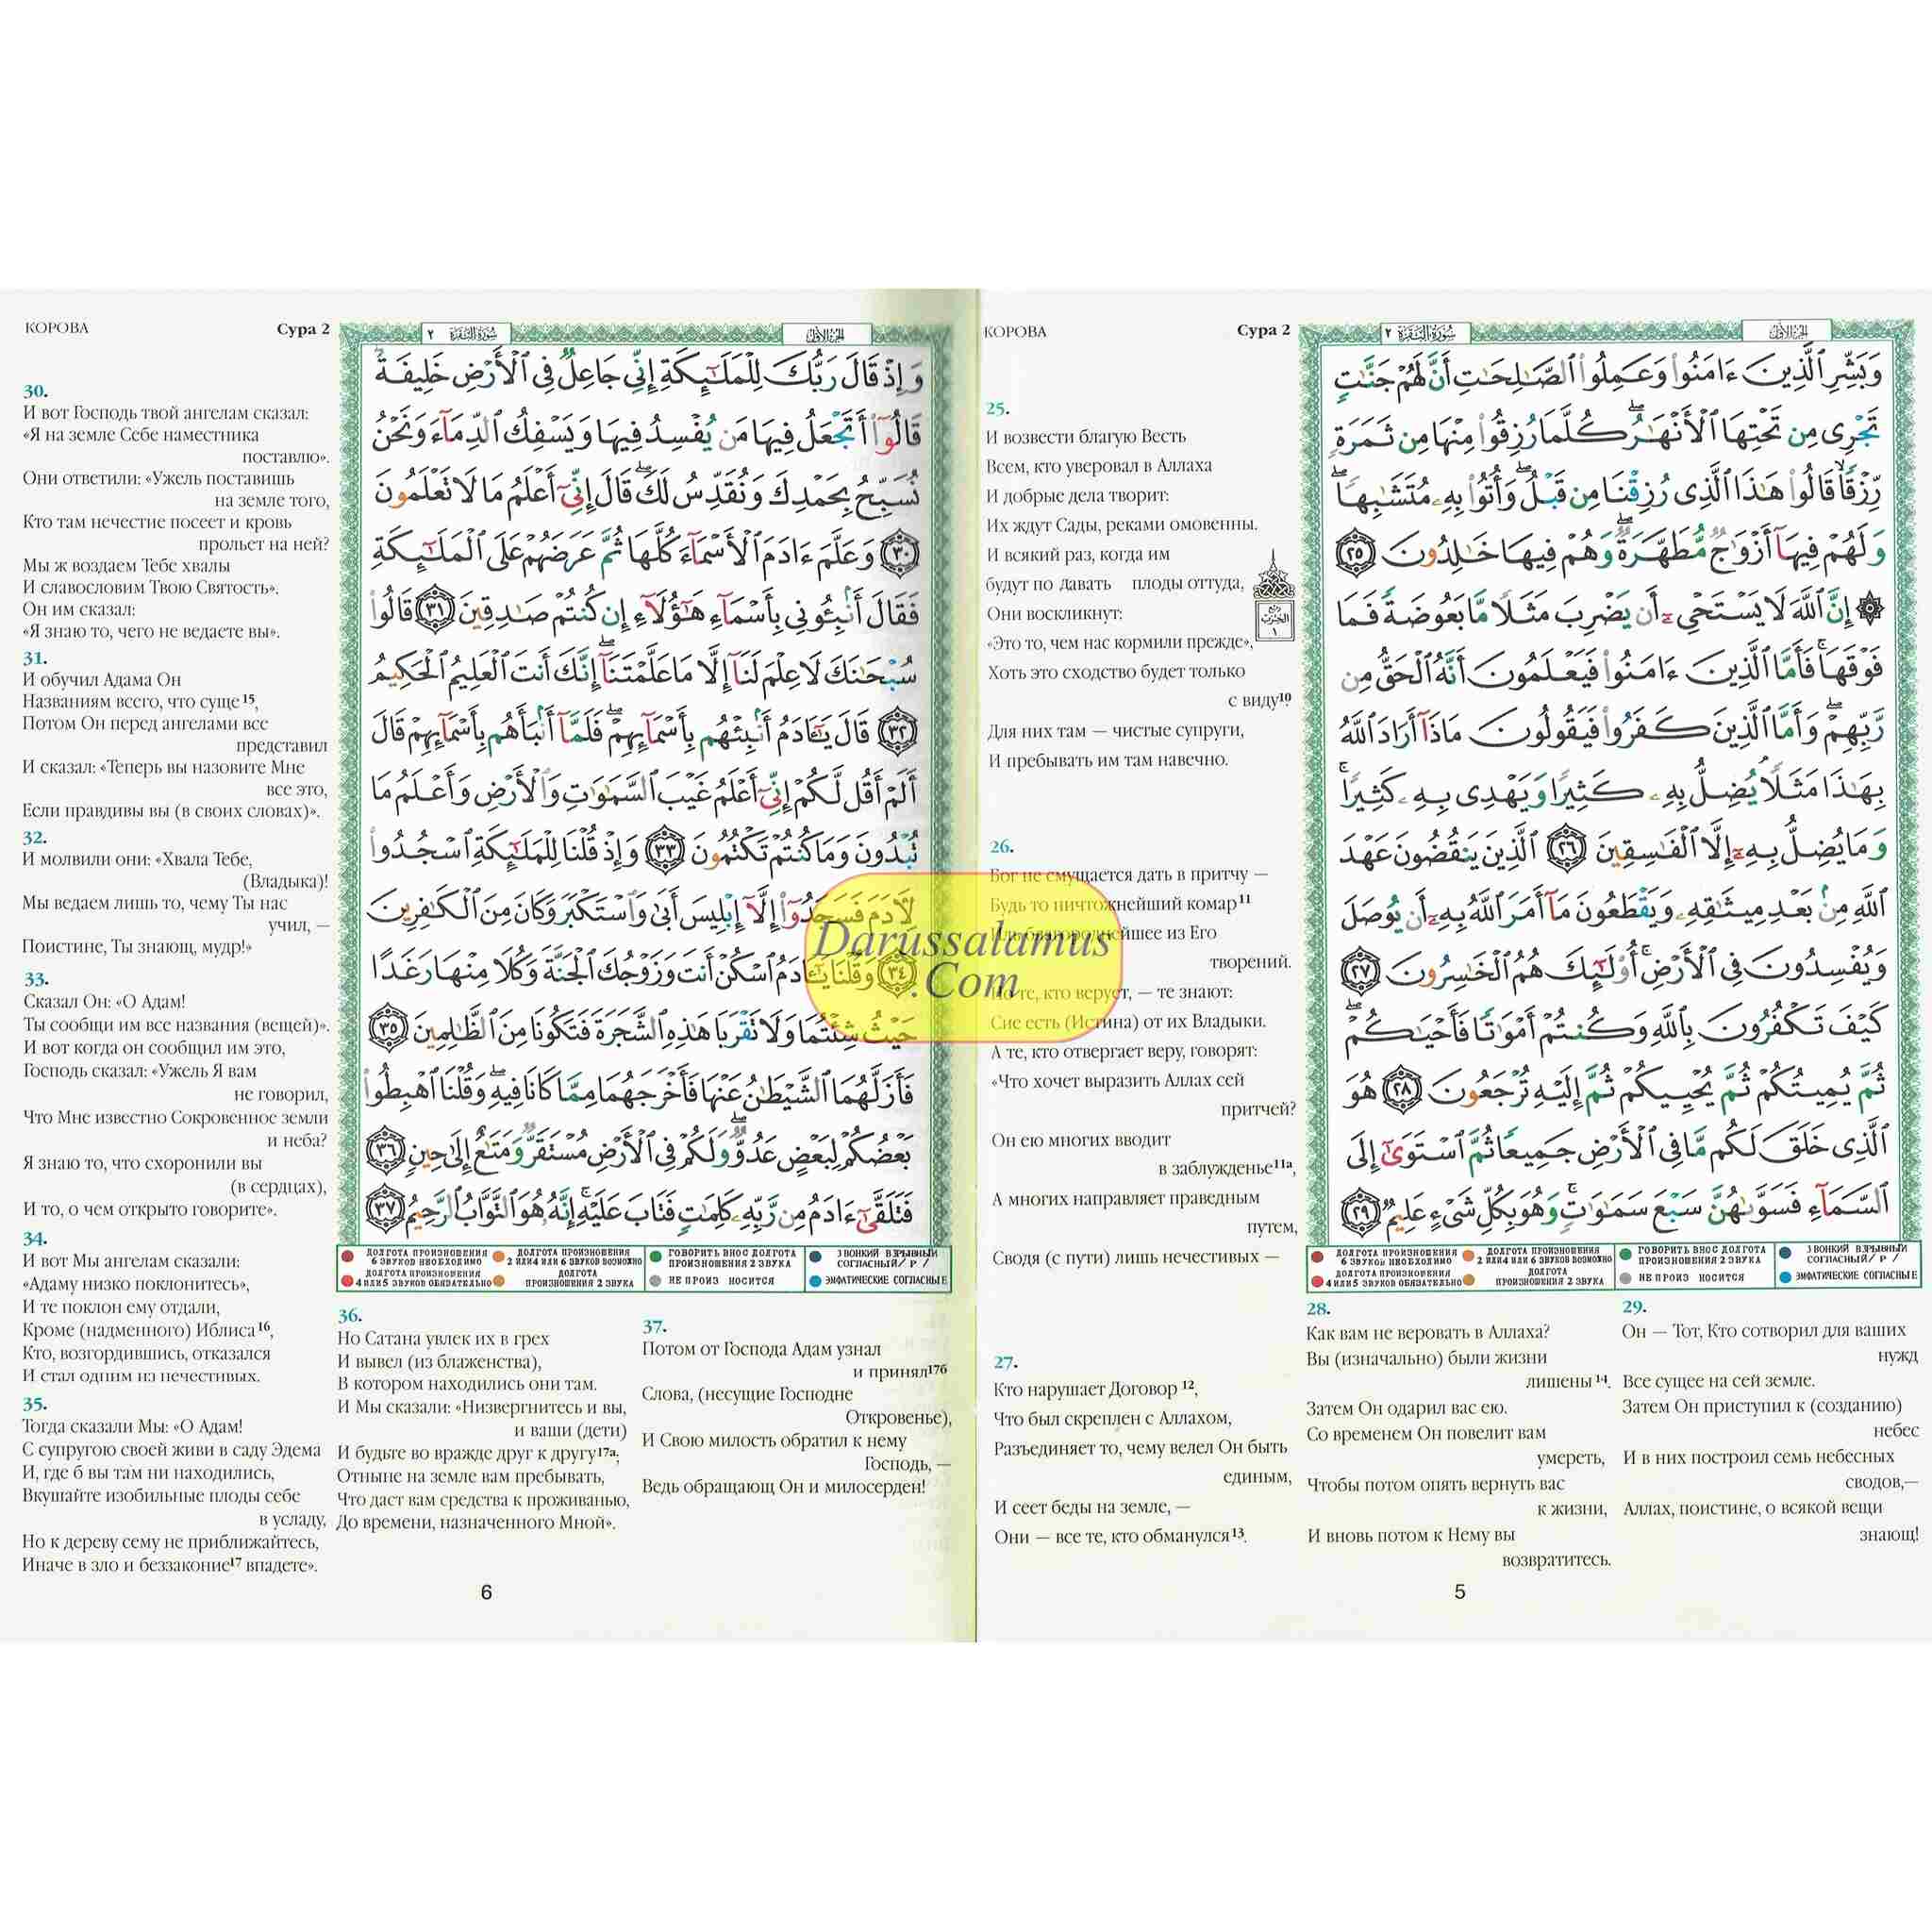 КОРОВА
Сура 2
25.
И возвести благую Весть
Всем, кто уверовал в Аллаха
И добрые дела творит:
Их ждут Сады, реками омовенны.
И всякий раз, когда им
будут по давать плоды оттуда,
Они воскликнут:
«Это то, чем нас кормили прежде»,
Хоть это сходство будет только
с виду10
Для них там — чистые супруги,
И пребывать им там навечно.
26.
Бог не смущается дать в притчу —
Будь то ничтожнейший комар11
творений.
те, кто верует, — те знают:
Сие есть (Истина) от их Владыки.
А те, кто отвергает веру, говорят:
«Что хочет выразить Аллах сей
притчей?
Он ею многих вводит
в заблужденье11а,
А многих направляет праведным
путем,
Сводя (с пути) лишь нечестивых —
27.
Кто нарушает Договор 12,
Что был скреплен с Аллахом,
Разъединяет то, чему велел Он быть
единым,
И сеет беды на земле, —
Они — все те, кто обманулся13.
سُورَةُ البَقَرَةِ ٢
الجزء الأول
وَبَشِّرِ ٱلَّذِينَ ءَامَنُوا۟ وَعَمِلُوا۟ ٱلصَّـٰلِحَـٰتِ أَنَّ لَهُمْ جَنَّـٰتٍ
تَجْرِى مِن تَحْتِهَا ٱلْأَنْهَـٰرُ ۖ كُلَّمَا رُزِقُوا۟ مِنْهَا مِن ثَمَرَةٍ
رِّزْقًا ۙ قَالُوا۟ هَـٰذَا ٱلَّذِى رُزِقْنَا مِن قَبْلُ ۖ وَأُتُوا۟ بِهِۦ مُتَشَـٰبِهًا ۖ
وَلَهُمْ فِيهَآ أَزْوَٰجٌ مُّطَهَّرَةٌ ۖ وَهُمْ فِيهَا خَـٰلِدُونَ ٢٥
۞ إِنَّ ٱللَّهَ لَا يَسْتَحْىِۦٓ أَن يَضْرِبَ مَثَلًا مَّا بَعُوضَةً فَمَا
فَوْقَهَا ۚ فَأَمَّا ٱلَّذِينَ ءَامَنُوا۟ فَيَعْلَمُونَ أَنَّهُ ٱلْحَقُّ مِن
رَّبِّهِمْ ۖ وَأَمَّا ٱلَّذِينَ كَفَرُوا۟ فَيَقُولُونَ مَاذَآ أَرَادَ ٱللَّهُ
بِهَـٰذَا مَثَلًا ۘ يُضِلُّ بِهِۦ كَثِيرًا وَيَهْدِى بِهِۦ كَثِيرًا ۚ
وَمَا يُضِلُّ بِهِۦٓ إِلَّا ٱلْفَـٰسِقِينَ ٢٦ ٱلَّذِينَ يَنقُضُونَ عَهْدَ
ٱللَّهِ مِنۢ بَعْدِ مِيثَـٰقِهِۦ وَيَقْطَعُونَ مَآ أَمَرَ ٱللَّهُ بِهِۦٓ أَن يُوصَلَ
وَيُفْسِدُونَ فِى ٱلْأَرْضِ ۚ أُو۟لَـٰٓئِكَ هُمُ ٱلْخَـٰسِرُونَ ٢٧
كَيْفَ تَكْفُرُونَ بِٱللَّهِ وَكُنتُمْ أَمْوَٰتًا فَأَحْيَـٰكُمْ ۖ
ثُمَّ يُمِيتُكُمْ ثُمَّ يُحْيِيكُمْ ثُمَّ إِلَيْهِ تُرْجَعُونَ ٢٨ هُوَ
ٱلَّذِى خَلَقَ لَكُم مَّا فِى ٱلْأَرْضِ جَمِيعًا ثُمَّ ٱسْتَوَىٰٓ إِلَى
ٱلسَّمَآءِ فَسَوَّىٰهُنَّ سَبْعَ سَمَـٰوَٰتٍ ۚ وَهُوَ بِكُلِّ شَىْءٍ عَلِيمٌ ٢٩
ДОЛГОТА ПРОИЗНОШЕНИЯ 6 ЗВУКОВ НЕОБХОДИМО
ДОЛГОТА ПРОИЗНОШЕНИЯ 2 ИЛИ 4 ИЛИ 6 ЗВУКОВ ВОЗМОЖНО
ГОВОРИТЬ ВНОС ДОЛГОТА ПРОИЗНОШЕНИЯ 2 ЗВУКА
ЗВОНКИЙ ВЗРЫВНЫЙ СОГЛАСНЫЙ/ Р /
ДОЛГОТА ПРОИЗНОШЕНИЯ 4 ИЛИ 5 ЗВУКОВ ОБЯЗАТЕЛЬНО
ДОЛГОТА ПРОИЗНОШЕНИЯ 2 ЗВУКА
НЕ ПРОИЗ НОСИТСЯ
ЭМФАТИЧЕСКИЕ СОГЛАСНЫЕ
28.
Как вам не веровать в Аллаха?
Вы (изначально) были жизни
лишены14.
Затем Он одарил вас ею.
Со временем Он повелит вам
умереть,
Чтобы потом опять вернуть вас
к жизни,
И вновь потом к Нему вы
возвратитесь.
29.
Он — Тот, Кто сотворил для ваших
нужд
Все сущее на сей земле.
Затем Он приступил к (созданию)
небес
И в них построил семь небесных
сводов,—
Аллах, поистине, о всякой вещи
знающ!
5
КОРОВА
Сура 2
30.
И вот Господь твой ангелам сказал:
«Я на земле Себе наместника
поставлю».
Они ответили: «Ужель поставишь
на земле того,
Кто там нечестие посеет и кровь
прольет на ней?
Мы ж воздаем Тебе хвалы
И славословим Твою Святость».
Он им сказал:
«Я знаю то, чего не ведаете вы».
31.
И обучил Адама Он
Названиям всего, что суще15,
Потом Он перед ангелами все
представил
И сказал: «Теперь вы назовите Мне
все это,
Если правдивы вы (в своих словах)».
32.
И молвили они: «Хвала Тебе,
(Владыка)!
Мы ведаем лишь то, чему Ты нас
учил, —
Поистине, Ты знающ, мудр!»
33.
Сказал Он: «О Адам!
Ты сообщи им все названия (вещей)».
И вот когда он сообщил им это,
Господь сказал: «Ужель Я вам
не говорил,
Что Мне известно Сокровенное земли
и неба?
Я знаю то, что схоронили вы
(в сердцах),
И то, о чем открыто говорите».
34.
И вот Мы ангелам сказали:
«Адаму низко поклонитесь»,
И те поклон ему отдали,
Кроме (надменного) Иблиса16,
Кто, возгордившись, отказался
И стал одним из нечестивых.
35.
Тогда сказали Мы: «О Адам!
С супругою своей живи в саду Эдема
И, где б вы там ни находились,
Вкушайте изобильные плоды себе
в усладу,
Но к дереву сему не приближайтесь,
Иначе в зло и беззаконие17 впадете».
سُورَةُ البَقَرَةِ ٢
الجزء الأول
وَإِذْ قَالَ رَبُّكَ لِلْمَلَـٰٓئِكَةِ إِنِّى جَاعِلٌ فِى ٱلْأَرْضِ خَلِيفَةً ۖ
قَالُوٓا۟ أَتَجْعَلُ فِيهَا مَن يُفْسِدُ فِيهَا وَيَسْفِكُ ٱلدِّمَآءَ وَنَحْنُ
نُسَبِّحُ بِحَمْدِكَ وَنُقَدِّسُ لَكَ ۖ قَالَ إِنِّىٓ أَعْلَمُ مَا لَا تَعْلَمُونَ
٣٠ وَعَلَّمَ ءَادَمَ ٱلْأَسْمَآءَ كُلَّهَا ثُمَّ عَرَضَهُمْ عَلَى ٱلْمَلَـٰٓئِكَةِ
فَقَالَ أَنۢبِـُٔونِى بِأَسْمَآءِ هَـٰٓؤُلَآءِ إِن كُنتُمْ صَـٰدِقِينَ ٣١ قَالُوا۟
سُبْحَـٰنَكَ لَا عِلْمَ لَنَآ إِلَّا مَا عَلَّمْتَنَآ ۖ إِنَّكَ أَنتَ ٱلْعَلِيمُ ٱلْحَكِيمُ
٣٢ قَالَ يَـٰٓـَٔادَمُ أَنۢبِئْهُم بِأَسْمَآئِهِمْ ۖ فَلَمَّآ أَنۢبَأَهُم بِأَسْمَآئِهِمْ قَالَ
أَلَمْ أَقُل لَّكُمْ إِنِّىٓ أَعْلَمُ غَيْبَ ٱلسَّمَـٰوَٰتِ وَٱلْأَرْضِ وَأَعْلَمُ مَا
تُبْدُونَ وَمَا كُنتُمْ تَكْتُمُونَ ٣٣ وَإِذْ قُلْنَا لِلْمَلَـٰٓئِكَةِ ٱسْجُدُوا۟
لِـَٔادَمَ فَسَجَدُوٓا۟ إِلَّآ إِبْلِيسَ أَبَىٰ وَٱسْتَكْبَرَ وَكَانَ مِنَ ٱلْكَـٰفِرِينَ
٣٤ وَقُلْنَا يَـٰٓـَٔادَمُ ٱسْكُنْ أَنتَ وَزَوْجُكَ ٱلْجَنَّةَ وَكُلَا مِنْهَا رَغَدًا
حَيْثُ شِئْتُمَا وَلَا تَقْرَبَا هَـٰذِهِ ٱلشَّجَرَةَ فَتَكُونَا مِنَ ٱلظَّـٰلِمِينَ ٣٥
فَأَزَلَّهُمَا ٱلشَّيْطَـٰنُ عَنْهَا فَأَخْرَجَهُمَا مِمَّا كَانَا فِيهِ ۖ وَقُلْنَا ٱهْبِطُوا۟
بَعْضُكُمْ لِبَعْضٍ عَدُوٌّ ۖ وَلَكُمْ فِى ٱلْأَرْضِ مُسْتَقَرٌّ وَمَتَـٰعٌ إِلَىٰ حِينٍ ٣٦
فَتَلَقَّىٰٓ ءَادَمُ مِن رَّبِّهِۦ كَلِمَـٰتٍ فَتَابَ عَلَيْهِ ۚ إِنَّهُۥ هُوَ ٱلتَّوَّابُ ٱلرَّحِيمُ ٣٧
ДОЛГОТА ПРОИЗНОШЕНИЯ 6 ЗВУКОВ НЕОБХОДИМО
ДОЛГОТА ПРОИЗНОШЕНИЯ 2 ИЛИ 4 ИЛИ 6 ЗВУКОВ ВОЗМОЖНО
ГОВОРИТЬ ВНОС ДОЛГОТА ПРОИЗНОШЕНИЯ 2 ЗВУКА
ЗВОНКИЙ ВЗРЫВНЫЙ СОГЛАСНЫЙ/ Р /
ДОЛГОТА ПРОИЗНОШЕНИЯ 4 ИЛИ 5 ЗВУКОВ ОБЯЗАТЕЛЬНО
ДОЛГОТА ПРОИЗНОШЕНИЯ 2 ЗВУКА
НЕ ПРОИЗ НОСИТСЯ
ЭМФАТИЧЕСКИЕ СОГЛАСНЫЕ
36.
Но Сатана увлек их в грех
И вывел (из блаженства),
В котором находились они там.
И Мы сказали: «Низвергнитесь и вы,
и ваши (дети)
И будьте во вражде друг к другу17а;
Отныне на земле вам пребывать,
Что даст вам средства к проживанью,
До времени, назначенного Мной».
37.
Потом от Господа Адам узнал
и принял17б
Слова, (несущие Господне
Откровенье),
И Свою милость обратил к нему
Господь, —
Ведь обращающ Он и милосерден!
6
Darussalamus
.Com